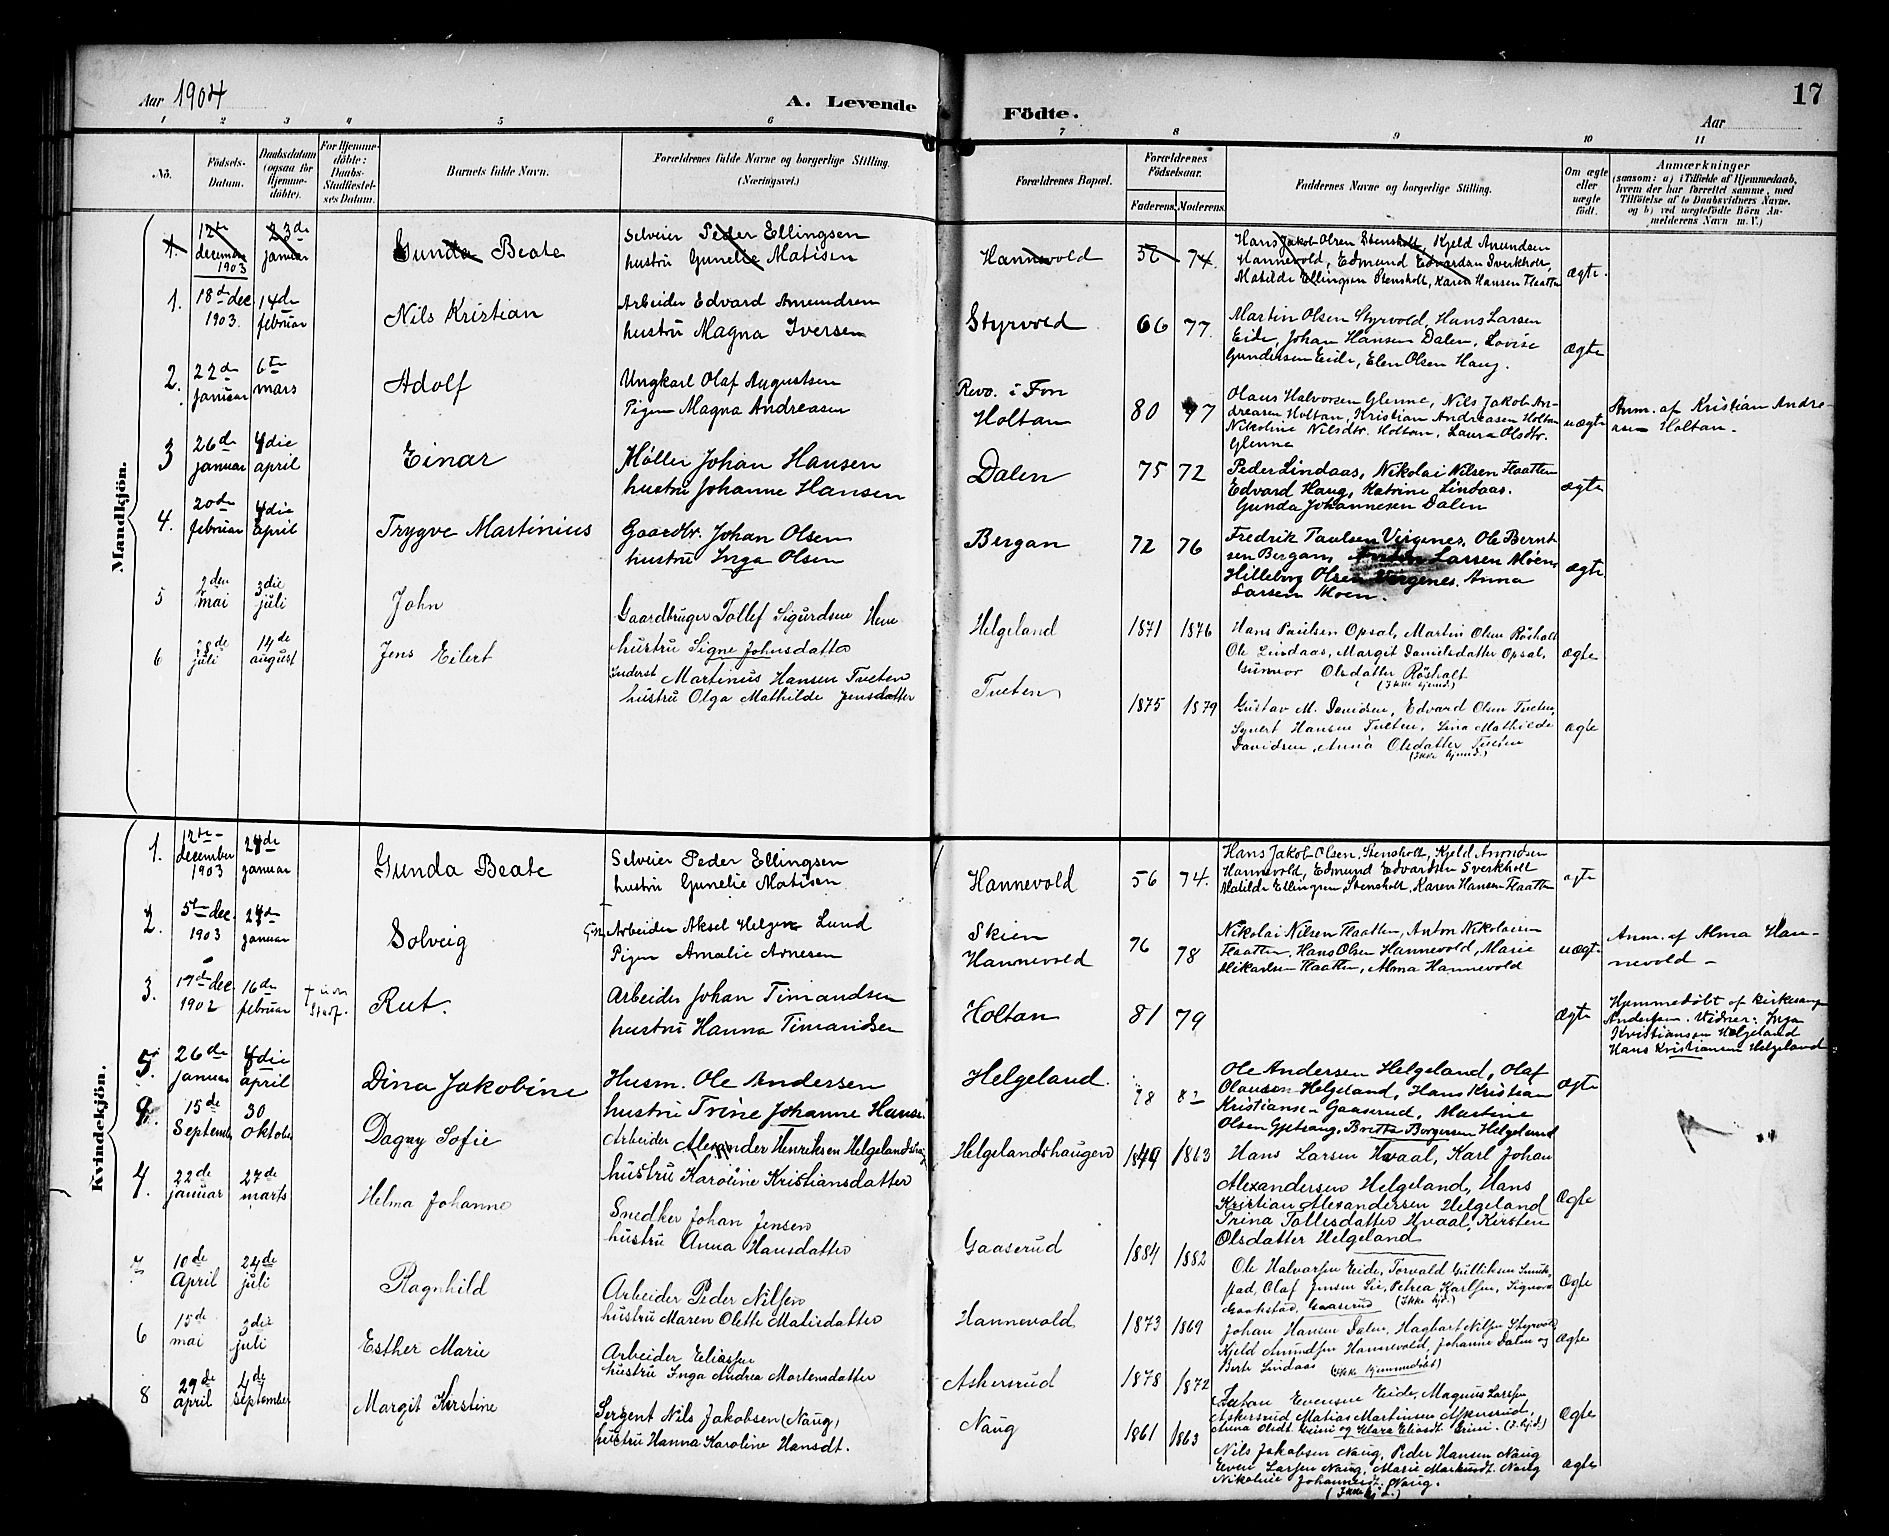 Aar 1904
A. Levende
Födte.
17
Aar
1 2 3 4 5 6 7 8 9 10 11
No.
Födsels-
Datum.
Daabsdatum
(ogsaa for
Hjemme-
döbte).
For Hjemme-
döbte:
Daabs-
Stadfæstel-
ses Datum.
Barnets fulde Navn.
Forældrenes fulde Navne og borgerlige Stilling.
(Næringsvei.)
Forældrenes Bopæl.
Forældrenes
Födselsaar.
Faderens. Moderens.
Faddernes Navne og borgerlige Stilling.
Om ægte
eller
uægte
født.
Anmærkninger
(saasom: a) i Tilfælde af Hjemmedaab,
hvem der har forrettet samme, med
Tilföielse af to Daabsvidners Navne.
og b) ved uægtefödte Börn An-
melderens Navn m. V.)
Mandkjön.
1. 12te december 1903 23de januar
Gunda Beate
Selveier Peder Ellingsen
hustru Gunelie Matisen
Hannevold
52 74.
Hans Jakob Olsen Stensholt, Kjeld Amundsen
Hannevold, Edmund Edvardsen Sverkholt,
Matilde Ellingsen Stensholt, Karen Hansen Flaatten
ægte.
1. 18de dec. 1903. 14de februar
Nils Kristian
Arbeider Edvard Amundsen
hustru Magna Iversen
Styrvold
66 77.
Martin Olsen Styrvold, Hans Larsen
Eide, Johan Hansen Dalen, Lovise
Gundersen Eide, Elen Olsen Haug.
ægte
2. 22de januar 6te mars
Adolf
Ungkarl Olaf Augustsen
Pigen Magna Andreasen
Revo. i Fon
Holtan
80 77
Olaus Halvorsen Glenne, Nils Jakob An-
dreasen Holtan, Kristian Andreasen Holtan
Nikoline Nilsdtr. Holtan, Laura Olsdtr.
Glenne
uægte
Anm. af Kristian Andre-
asen Holtan.
3 26de januar 4die april
Einar
Møller Johan Hansen
hustru Johanne Hansen
Dalen
75 72
Peder Lindaas, Nikolai Nilsen Flaatten
Edvard Haug, Katrine Lindaas.
Gunda Johannesen Dalen
ægte
4. 20de februar 4die april
Trygve Martinius
Gaardbr. Johan Olsen
hustru Inga Olsen
Bergan
72 76
Fredrik Paulsen Virgenes, Ole Bernt
sen Bergan, Larsen Moen,
Hilleborg Olsen Virgenes. Anna
Larsen Moen.
ægte
5 2den mai 3die juli
John
Gaardbruger Tollef Sigurdsen
hustru Signe Johnsdatter
Helgeland
1871 1876
Hans Paulsen Opsal, Martin Olsen Röshalt
Ole Lindaas, Margit Danielsdatter Opsal,
Gunvor Olsdatter Röshalt
(Ikke hjemd.)
ægte
6 juli 14de august
Jens Eilert
Inderst Martinius Hansen Tveten
hustru Olga Mathilde Jensdatter
Tveten
1875 1879
Gustav M. Davidsen, Edvard Olsen Tveten,
Syvert Hansen Tveten, Lina Mathilde
Davidsen, Anna Olsdatter Tveten
(Ikke hjemd.)
ægte
Kvindekjön.
1. 12te december 1903 24de januar
Gunda Beate
Selveier Peder Ellingsen
hustru Gunelie Matisen
Hannevold
56 74.
Hans Jakob Olsen, Stensholt, Kjeld Amundsen
Hannevold, Edmund Edvardsen Sverkholt
Matilde Ellingsen, Stensholt, Karen Hansen Flaatten
ægte
2. 5te dec. 1903 24de januar
Solveig
Arbeider Aksel Helgen Lund
Pigen Amalie Arnesen
Skien
Hannevold
76 78
Nikolai Nilsen Flaatten, Anton Nikolaisen
Flaatten, Hans Olsen Hannevold, Marie
Mikaelsen Flaatten, Alma Hannevold
uægte
Anm. af Alma Han-
nevold -
3. 17de dec. 1902 16de februar
Rut.
Arbeider Johan Timandsen
hustru Hanna Timandsen
Holtan
81 79
ægte
Hjemmedöbt af kirkesanger
Andersen. Vidner: Inga
Kristiansen Helgeland
Hans Kristiansen Helgeland
5. 26de januar 4die april
Dina Jakobine
Husm. Ole Andersen
hustru Trine Johanne Hanse.
Helgeland.
78 82
Ole Andersen Helgeland, Olaf
Olausen Helgeland, Hans Kristian
Kristiansen Gaaserud, Martine
Olsen Gjetsang, Britta Borgersen Helgeland
ægte
9. 15de Septemb. 30 Oktober
Dagny Sofie
Arbeider Alexander Henriksen Helgelandshaug
hustru Karoline Kristiansdatter
Helgelandshaugen
1849 1863
Hans Larsen Hvaal, Karl Johan
Alexandersen Helgeland, Hans
Kristian Alexandersen Helgeland
Trina Tollisdatter Hvaal, Kirsten
Olsdatter Helgeland
ægte
4. 22de januar 27de marts
Helma Johanne
Snedker Johan Jensen
hustru Anna Hansdatter
Gaaserud
1884 1882
Ole Halvorsen Eide, Torvald Gulliksen
stad, Olaf Jensen Lie, Petrea Karlsen, Signora
Gaaserud (Ikke hjd.)
ægte
7 10de April 24de juli
Ragnhild
Arbeider Peder Nilsen
hustru Maren Olette Matisdatter
Hannevold
1873 1869
Johan Hansen Dalen, Hagbart Nilsen Styrvold
Kjeld Amundsen Hannevold, Johanne Dalen og
Berte Lindaas (ikke hjemmedöbt)
ægte
6 15de mai 3die juli
Esther Marie
Arbeider Eliassen
hustru Inga Andrea Mortensdatter
Askersrud
1878 1872
Evensen Eide, Magnus Larsen
Askersrud, Matias Martinsen Askersrud,
Anna Olsdt. Grini og Klara Eliasdt. Grini. (I. hjd.)
ægte
8 29de april 4de September
Margit Kirstine
Sergent Nils Jakobsen (Naug)
hustru Hanna Karoline Hansdt.
Naug
1861 1863
Nils Jakobsen Naug, Peder Hansen Naug
Even Larsen Naug, Marie Markusdt. Naug
Nikoline Johannesdt. Naug.
(Ikke hj. d.)
ægte